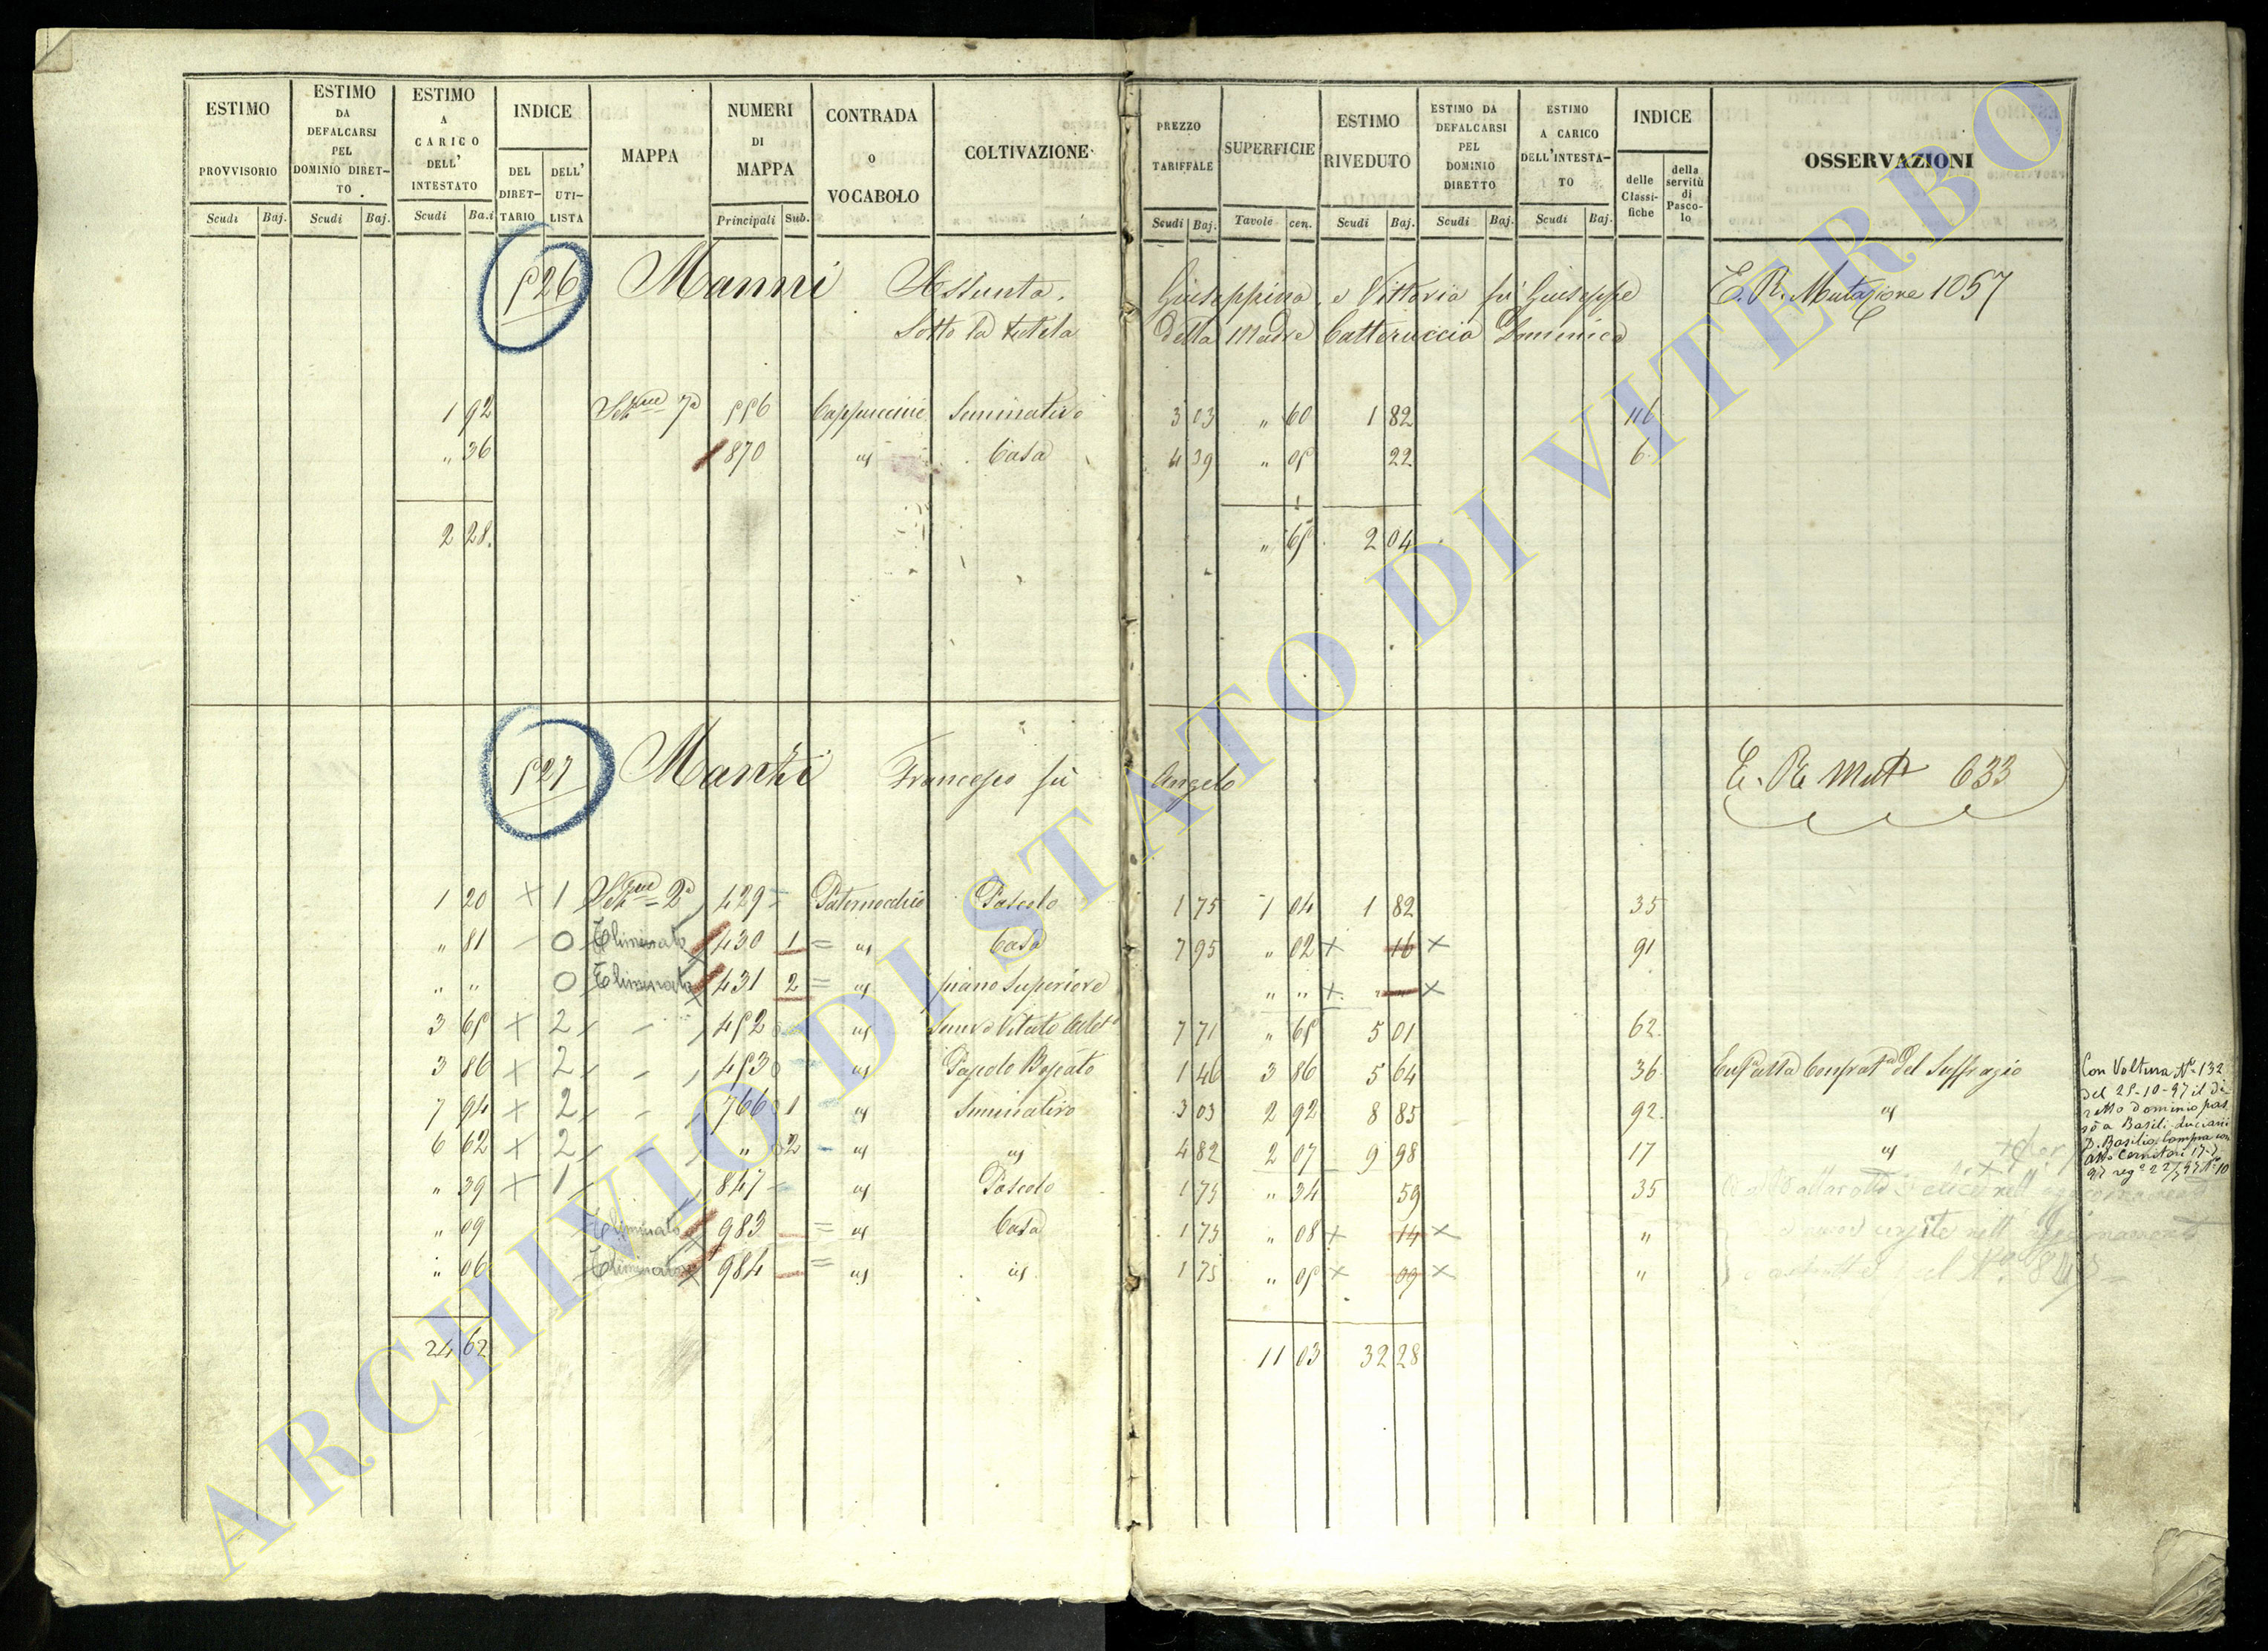 ESTIMO PROVVISORIO Scudi Baj.
ESTIMO DA DEFALCARSI PEL DOMINIO DIRET-TO Scudi Baj.
ESTIMO A CARICO DELL' INTESTATO Scudi Ba.i
INDICE DEL DIRET-TARIO DELL' UTI-LISTA
MAPPA
NUMERI DI MAPPA Principali Sub.
CONTRADA O VOCABOLO
COLTIVAZIONE
PREZZO TARIFFALE Scudi Baj.
SUPERFICIE Tavole cen.
ESTIMO RIVEDUTO Scudi Baj.
ESTIMO DA DEFALCARSI PEL DOMINIO DIRETTO Scudi Baj.
ESTIMO A CARICO DELL'INTESTA-TO Scudi Baj.
INDICE delle Classi-fiche della servitù di Pasco-lo
OSSERVAZIONI
526 Manni Assunta, Giuseppina, e Vittoria fu Giuseppe E. R. Mutazione 1057
Sotto la tutela della Madre Catteruccia Domenica
1 92 Sezne 7a 556 Cappuccini Seminativo 3 03 " 60 1 82 116
" 36 1870 id Casa 4 39 " 05 22 6
2 28. " 65 2 04
527 Manzi Francesco fu Angelo E. R. Mutne 633
1 20 + 1 Sezne 2a 429 = Paternocchio Pascolo 1 75 1 04 1 82 35
" 81 - 0 Eliminato 430 1 = id Casa 7 95 " 02 + 16 + 91
" " 0 Eliminato 431 2 = id piano Superiore " " + " +
3 65 + 2 452 id Semivo Vitato 7 71 " 65 5 01 62
3 86 + 2 453 id Pascolo Boscato 1 46 3 86 5 64 36 del Suffragio
7 94 + 2 766 1 id Seminativo 3 03 2 92 8 85 92 id
6 62 + 2 " 2 id id 4 82 2 07 9 98 17 id
" 39 + 1 847 id Pascolo 1 75 " 34 59 35
" 09 Eliminato 983 = id Casa 1 75 " 08 + 14 + "
" 06 Eliminato 984 = id id 1 75 " 05 + 09 + "
24 62 11 03 32 28
Con Voltura No 132
del 25-10-97 il di
retto dominio pas
sò a Basili Luciani
D. Basilio Compra con
atto Cernitori 17-7-
97 rego 22/7 97 No 10
ARCHIVIO DI STATO DI VITERBO